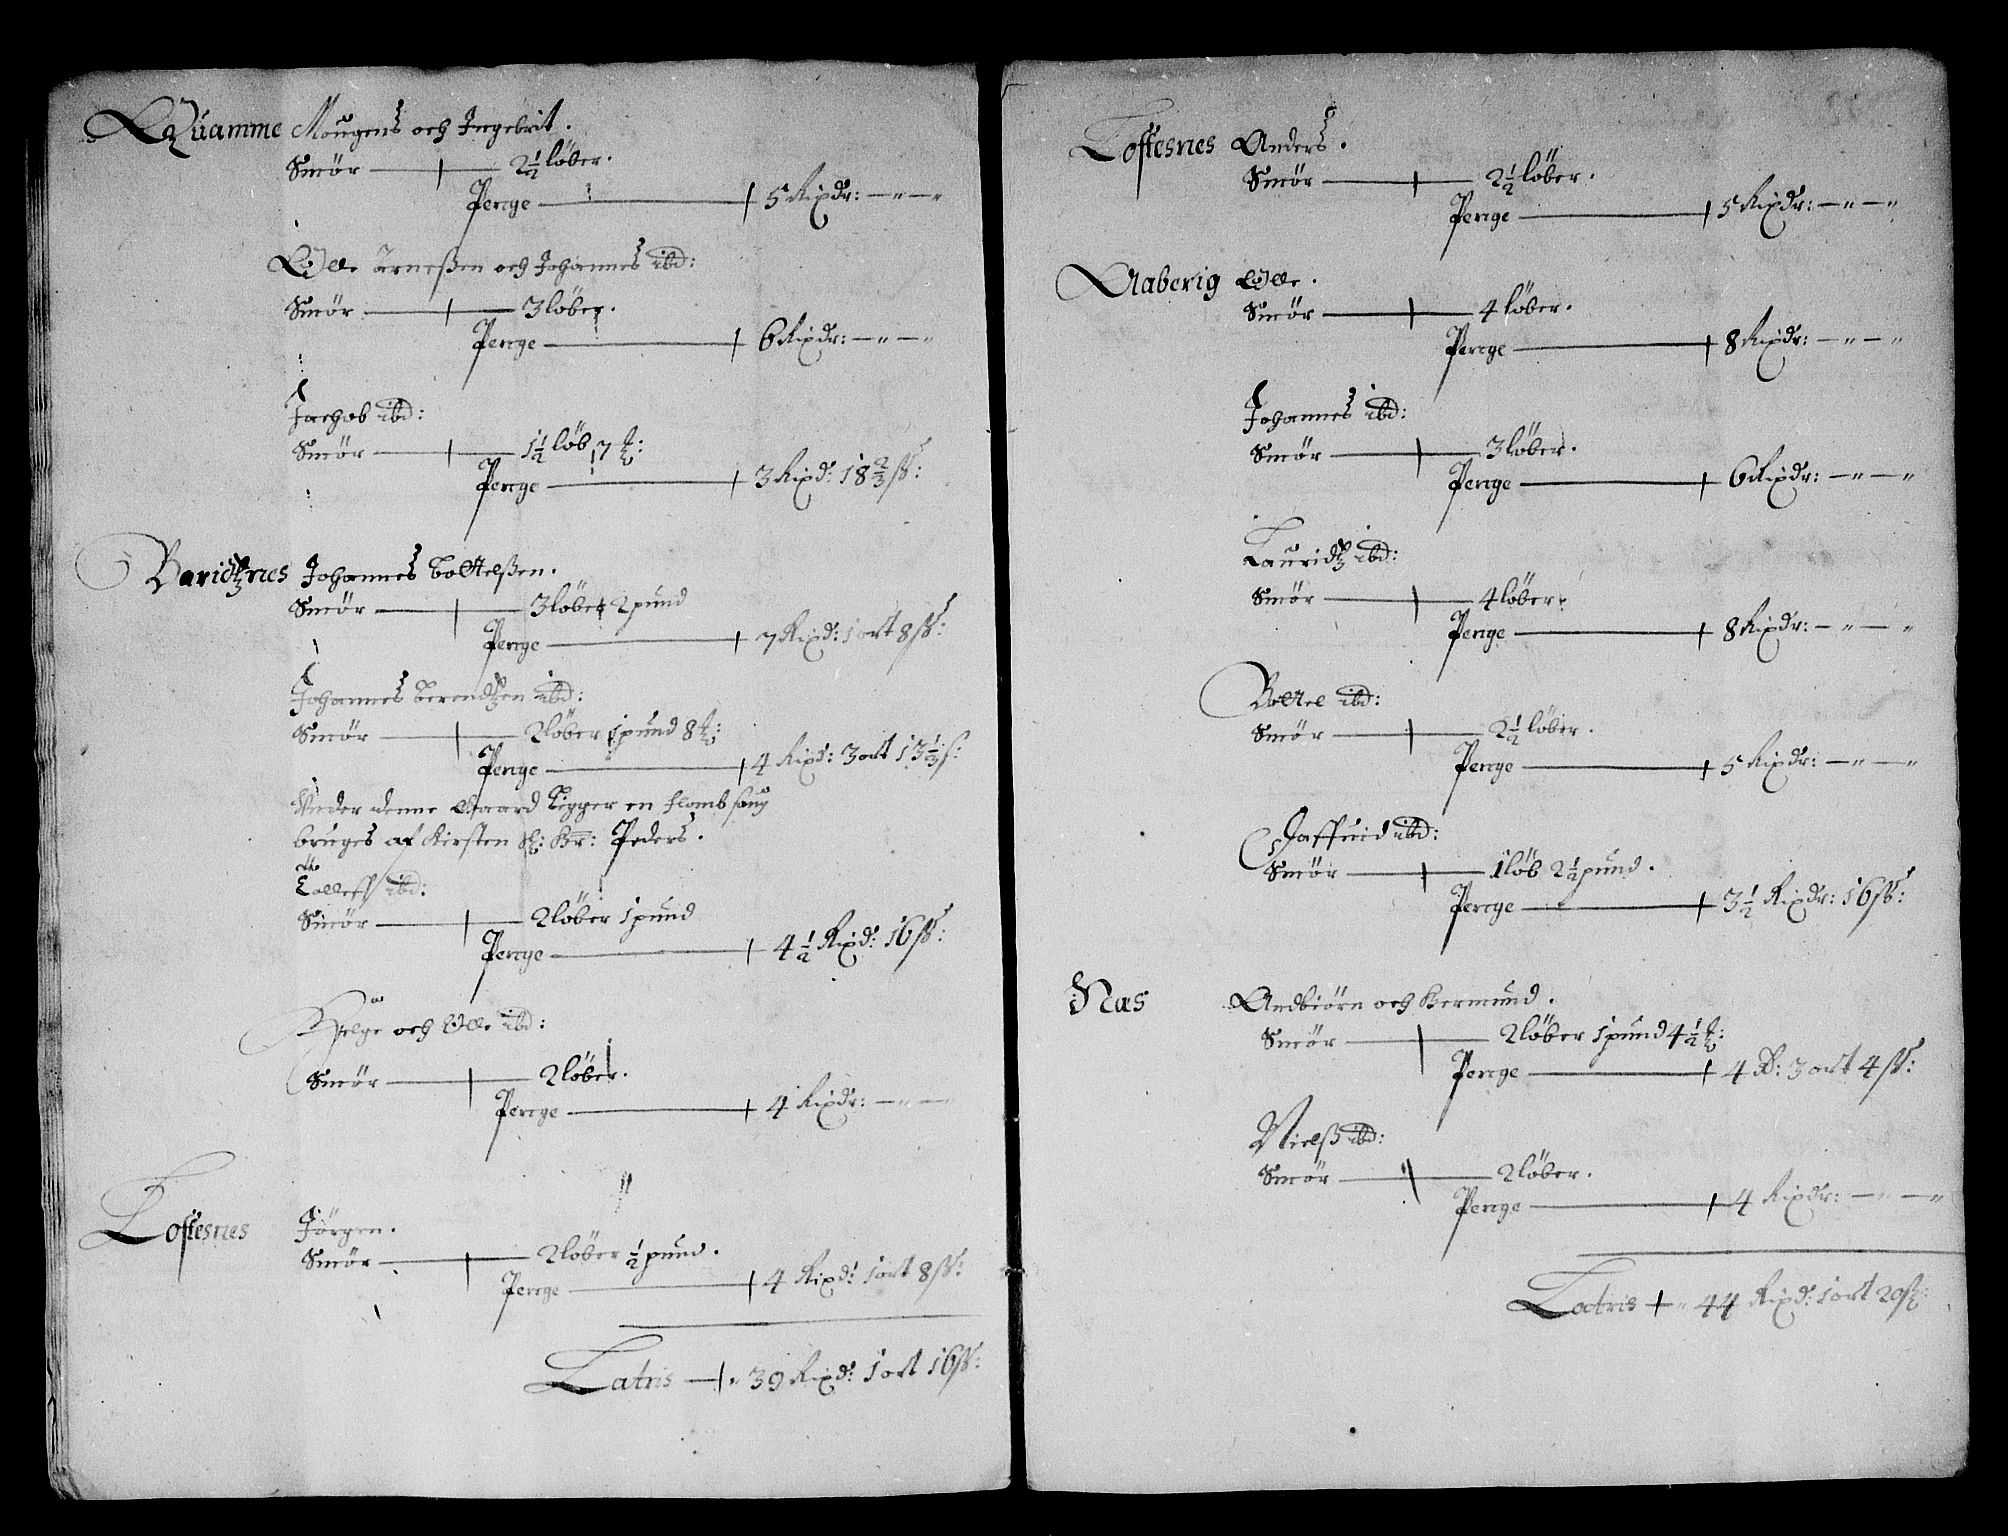 Quamme Mougens och Ingebrit.
Smör — 2 1/2 löber.
Penge — 5 Rixdr: — " — "
Olle Arneßen och Johannes ibd:
Smör — 3 löber.
Penge — 6 Rixdr: — " — "
Jachob ibd:
Smör — 1 1/2 löb 7
Penge — 3 Rixd: 18 2/3 ß:
Baridtznes Johannes Bottelßen.
Smör — 3 löber 2 pund
Penge — 7 Rixd: 1 ort 8 ß:
Johannes Berendtzen ibd:
Smör — 2 löber 1 pund 8
Penge — 4 Rixd: 3 ort 13 1/3 ß:
Under denne Gaard ligger en flomb saug
bruges af Kirsten Sl: Hr: Peders.
Tolleff ibd:
Smör — 2 löber 1 pund
Penge — 4 1/2 Rixd: 16 ß:
Helge och Olle ibd:
Smör — 2 löber.
Penge — 4 Rixdr: — " —
Toftesnes Jörgen.
Smör — 2 löber 1/2 pund.
Penge — 4 Rixd: 1 ort 8 ß:
Latris — " 39 Rixd: 1 ort 16 ß:
Toftesnes Anders.
Smör — 2 1/2 löber.
Penge — 5 Rixdr: — " — "
Aaberig Olle.
Smör — 4 löber.
Penge — 8 Rixdr: — " — "
Johannes ibd:
Smör — 3 löber.
Penge — 6 Rixdr: — " — "
Lauridtz ibd:
Smör — 4 löber.
Penge — 8 Rixdr: — " — "
Bottel ibd:
Smör — 2 1/2 löber.
Penge — 5 Rixdr: — " — "
ibd:
Smör — 1 löb 2 1/2 pund.
Penge — 3 1/2 Rixdr: 16 ß:
Næs Andbiörn och Germund.
Smör — 2 löber 1 pund 4 1/2
Penge — 4 R: 3 ort 4 ß:
Nielß ibd:
Smör — 2 löber.
Penge — 4 Rixdr: — " — "
Latris — " 44 Rixd: 1 ort 20 ß: